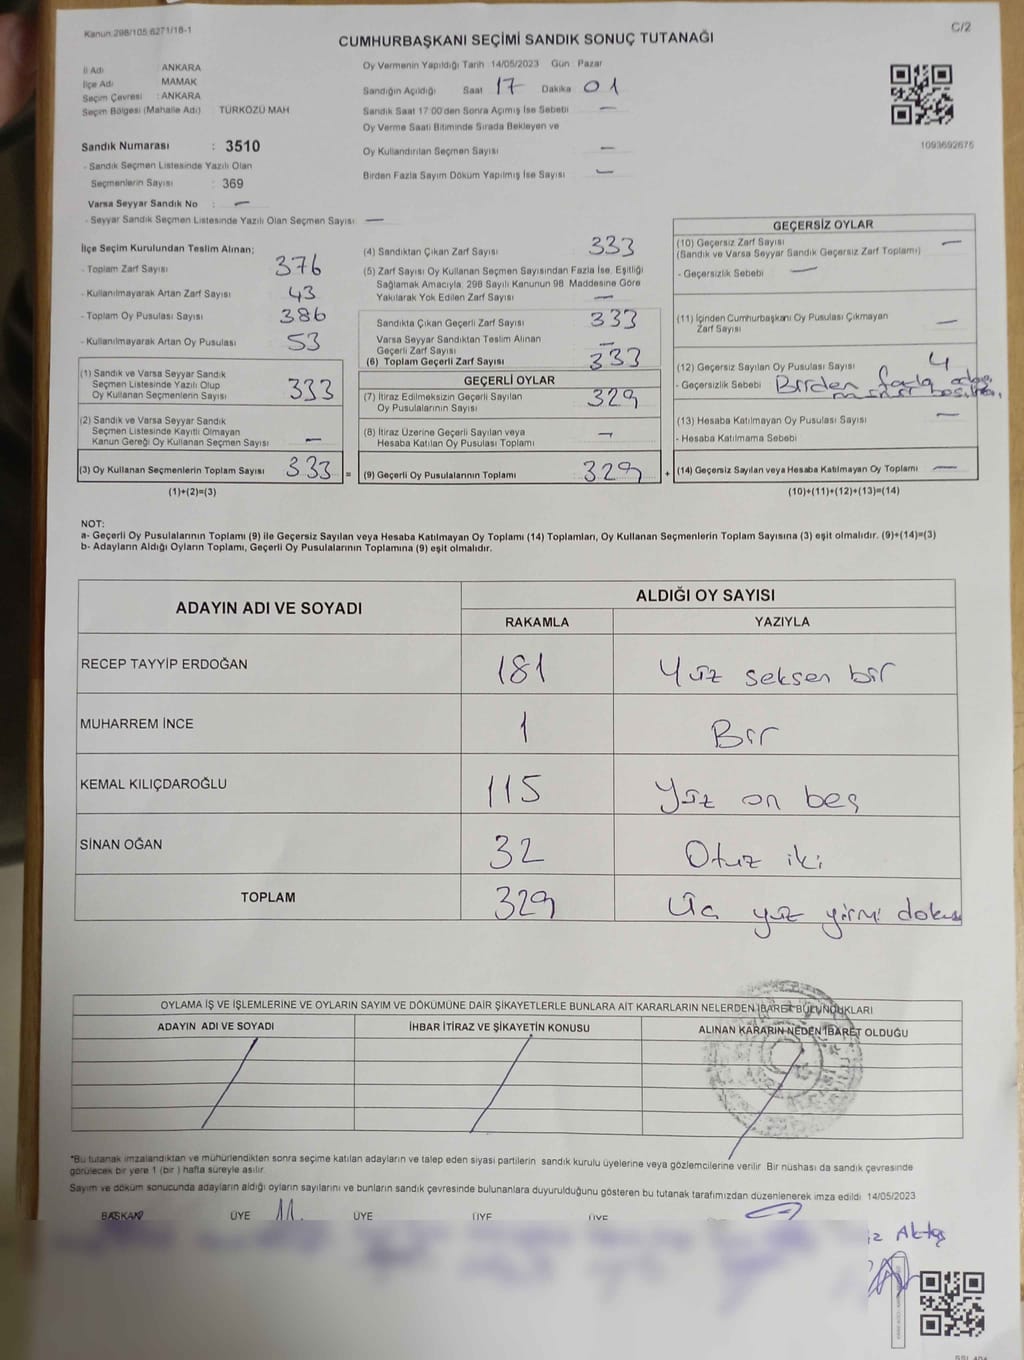 Kanun:298/105,6271/18-1
C/2
CUMHURBAŞKANI SEÇİMİ SANDIK SONUÇ TUTANAĞI
İl Adı : ANKARA
İlçe Adı : MAMAK
Seçim Çevresi : ANKARA
Seçim Bölgesi (Mahalle Adı) : TÜRKÖZÜ MAH.
Sandık Numarası : 3510
- Sandık Seçmen Listesinde Yazılı Olan
Seçmenlerin Sayısı : 369
Varsa Seyyar Sandık No : —
- Seyyar Sandık Seçmen Listesinde Yazılı Olan Seçmen Sayısı : —
Oy Vermenin Yapıldığı Tarih 14/05/2023 Gün Pazar
Sandığın Açıldığı Saat 17 Dakika 01
Sandık Saat 17:00'den Sonra Açılmış İse Sebebi —
Oy Verme Saati Bitiminde Sırada Bekleyen ve
Oy Kullandırılan Seçmen Sayısı —
Birden Fazla Sayım Döküm Yapılmış İse Sayısı —
1093692675
İlçe Seçim Kurulundan Teslim Alınan;
- Toplam Zarf Sayısı 376
- Kullanılmayarak Artan Zarf Sayısı 43
- Toplam Oy Pusulası Sayısı 386
- Kullanılmayarak Artan Oy Pusulası 53
(1) Sandık ve Varsa Seyyar Sandık
Seçmen Listesinde Yazılı Olup
Oy Kullanan Seçmenlerin Sayısı 333
(2) Sandık ve Varsa Seyyar Sandık
Seçmen Listesinde Kayıtlı Olmayan
Kanun Gereği Oy Kullanan Seçmen Sayısı —
(3) Oy Kullanan Seçmenlerin Toplam Sayısı 333 =
(1)+(2)=(3)
(4) Sandıktan Çıkan Zarf Sayısı 333
(5) Zarf Sayısı Oy Kullanan Seçmen Sayısından Fazla İse, Eşitliği
Sağlamak Amacıyla, 298 Sayılı Kanunun 98. Maddesine Göre
Yakılarak Yok Edilen Zarf Sayısı —
Sandıkta Çıkan Geçerli Zarf Sayısı 333
Varsa Seyyar Sandıktan Teslim Alınan
Geçerli Zarf Sayısı —
(6) Toplam Geçerli Zarf Sayısı 333
GEÇERLİ OYLAR
(7) İtiraz Edilmeksizin Geçerli Sayılan
Oy Pusulalarının Sayısı 329
(8) İtiraz Üzerine Geçerli Sayılan veya
Hesaba Katılan Oy Pusulası Toplamı —
(9) Geçerli Oy Pusulalarının Toplamı 329 +
GEÇERSİZ OYLAR
(10) Geçersiz Zarf Sayısı —
(Sandık ve Varsa Seyyar Sandık Geçersiz Zarf Toplamı)
- Geçersizlik Sebebi —
(11) İçinden Cumhurbaşkanı Oy Pusulası Çıkmayan
Zarf Sayısı —
(12) Geçersiz Sayılan Oy Pusulası Sayısı 4
- Geçersizlik Sebebi Birden fazla
(13) Hesaba Katılmayan Oy Pusulası Sayısı —
- Hesaba Katılmama Sebebi
(14) Geçersiz Sayılan veya Hesaba Katılmayan Oy Toplamı —
(10)+(11)+(12)+(13)=(14)
NOT:
a- Geçerli Oy Pusulalarının Toplamı (9) ile Geçersiz Sayılan veya Hesaba Katılmayan Oy Toplamı (14) Toplamları, Oy Kullanan Seçmenlerin Toplam Sayısına (3) eşit olmalıdır. (9)+(14)=(3)
b- Adayların Aldığı Oyların Toplamı, Geçerli Oy Pusulalarının Toplamına (9) eşit olmalıdır.
ADAYIN ADI VE SOYADI
ALDIĞI OY SAYISI
RAKAMLA YAZIYLA
RECEP TAYYİP ERDOĞAN 181 Yüz seksen bir
MUHARREM İNCE 1 Bir
KEMAL KILIÇDAROĞLU 115 Yüz on beş
SİNAN OĞAN 32 Otuz iki
TOPLAM 329 Üç yüz yirmi dokuz
OYLAMA İŞ VE İŞLEMLERİNE VE OYLARIN SAYIM VE DÖKÜMÜNE DAİR ŞİKAYETLERLE BUNLARA AİT KARARLARIN NELERDEN İBARET BULUNDUKLARI
ADAYIN ADI VE SOYADI İHBAR İTİRAZ VE ŞİKAYETİN KONUSU ALINAN KARARIN NEDEN İBARET OLDUĞU
*Bu tutanak imzalandıktan ve mühürlendikten sonra seçime katılan adayların ve talep eden siyasi partilerin sandık kurulu üyelerine veya gözlemcilerine verilir. Bir nüshası da sandık çevresinde
görülecek bir yere 1 (bir ) hafta süreyle asılır.
Sayım ve döküm sonucunda adayların aldığı oyların sayılarını ve bunların sandık çevresinde bulunanlara duyurulduğunu gösteren bu tutanak tarafımızdan düzenlenerek imza edildi. 14/05/2023
BAŞKAN ÜYE ÜYE ÜYE ÜYE
iz Aktaş